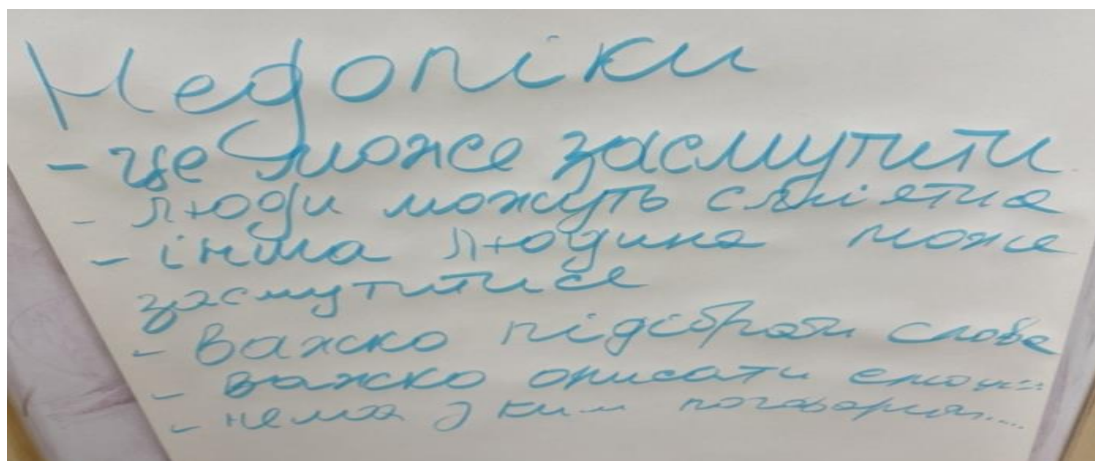 Недоліки
- це може засмутити
- люди можуть сміятися
- інша людина може
засмутитися
- важко підібрати слова
- важко описати емоції
- нема з ким поговорити...